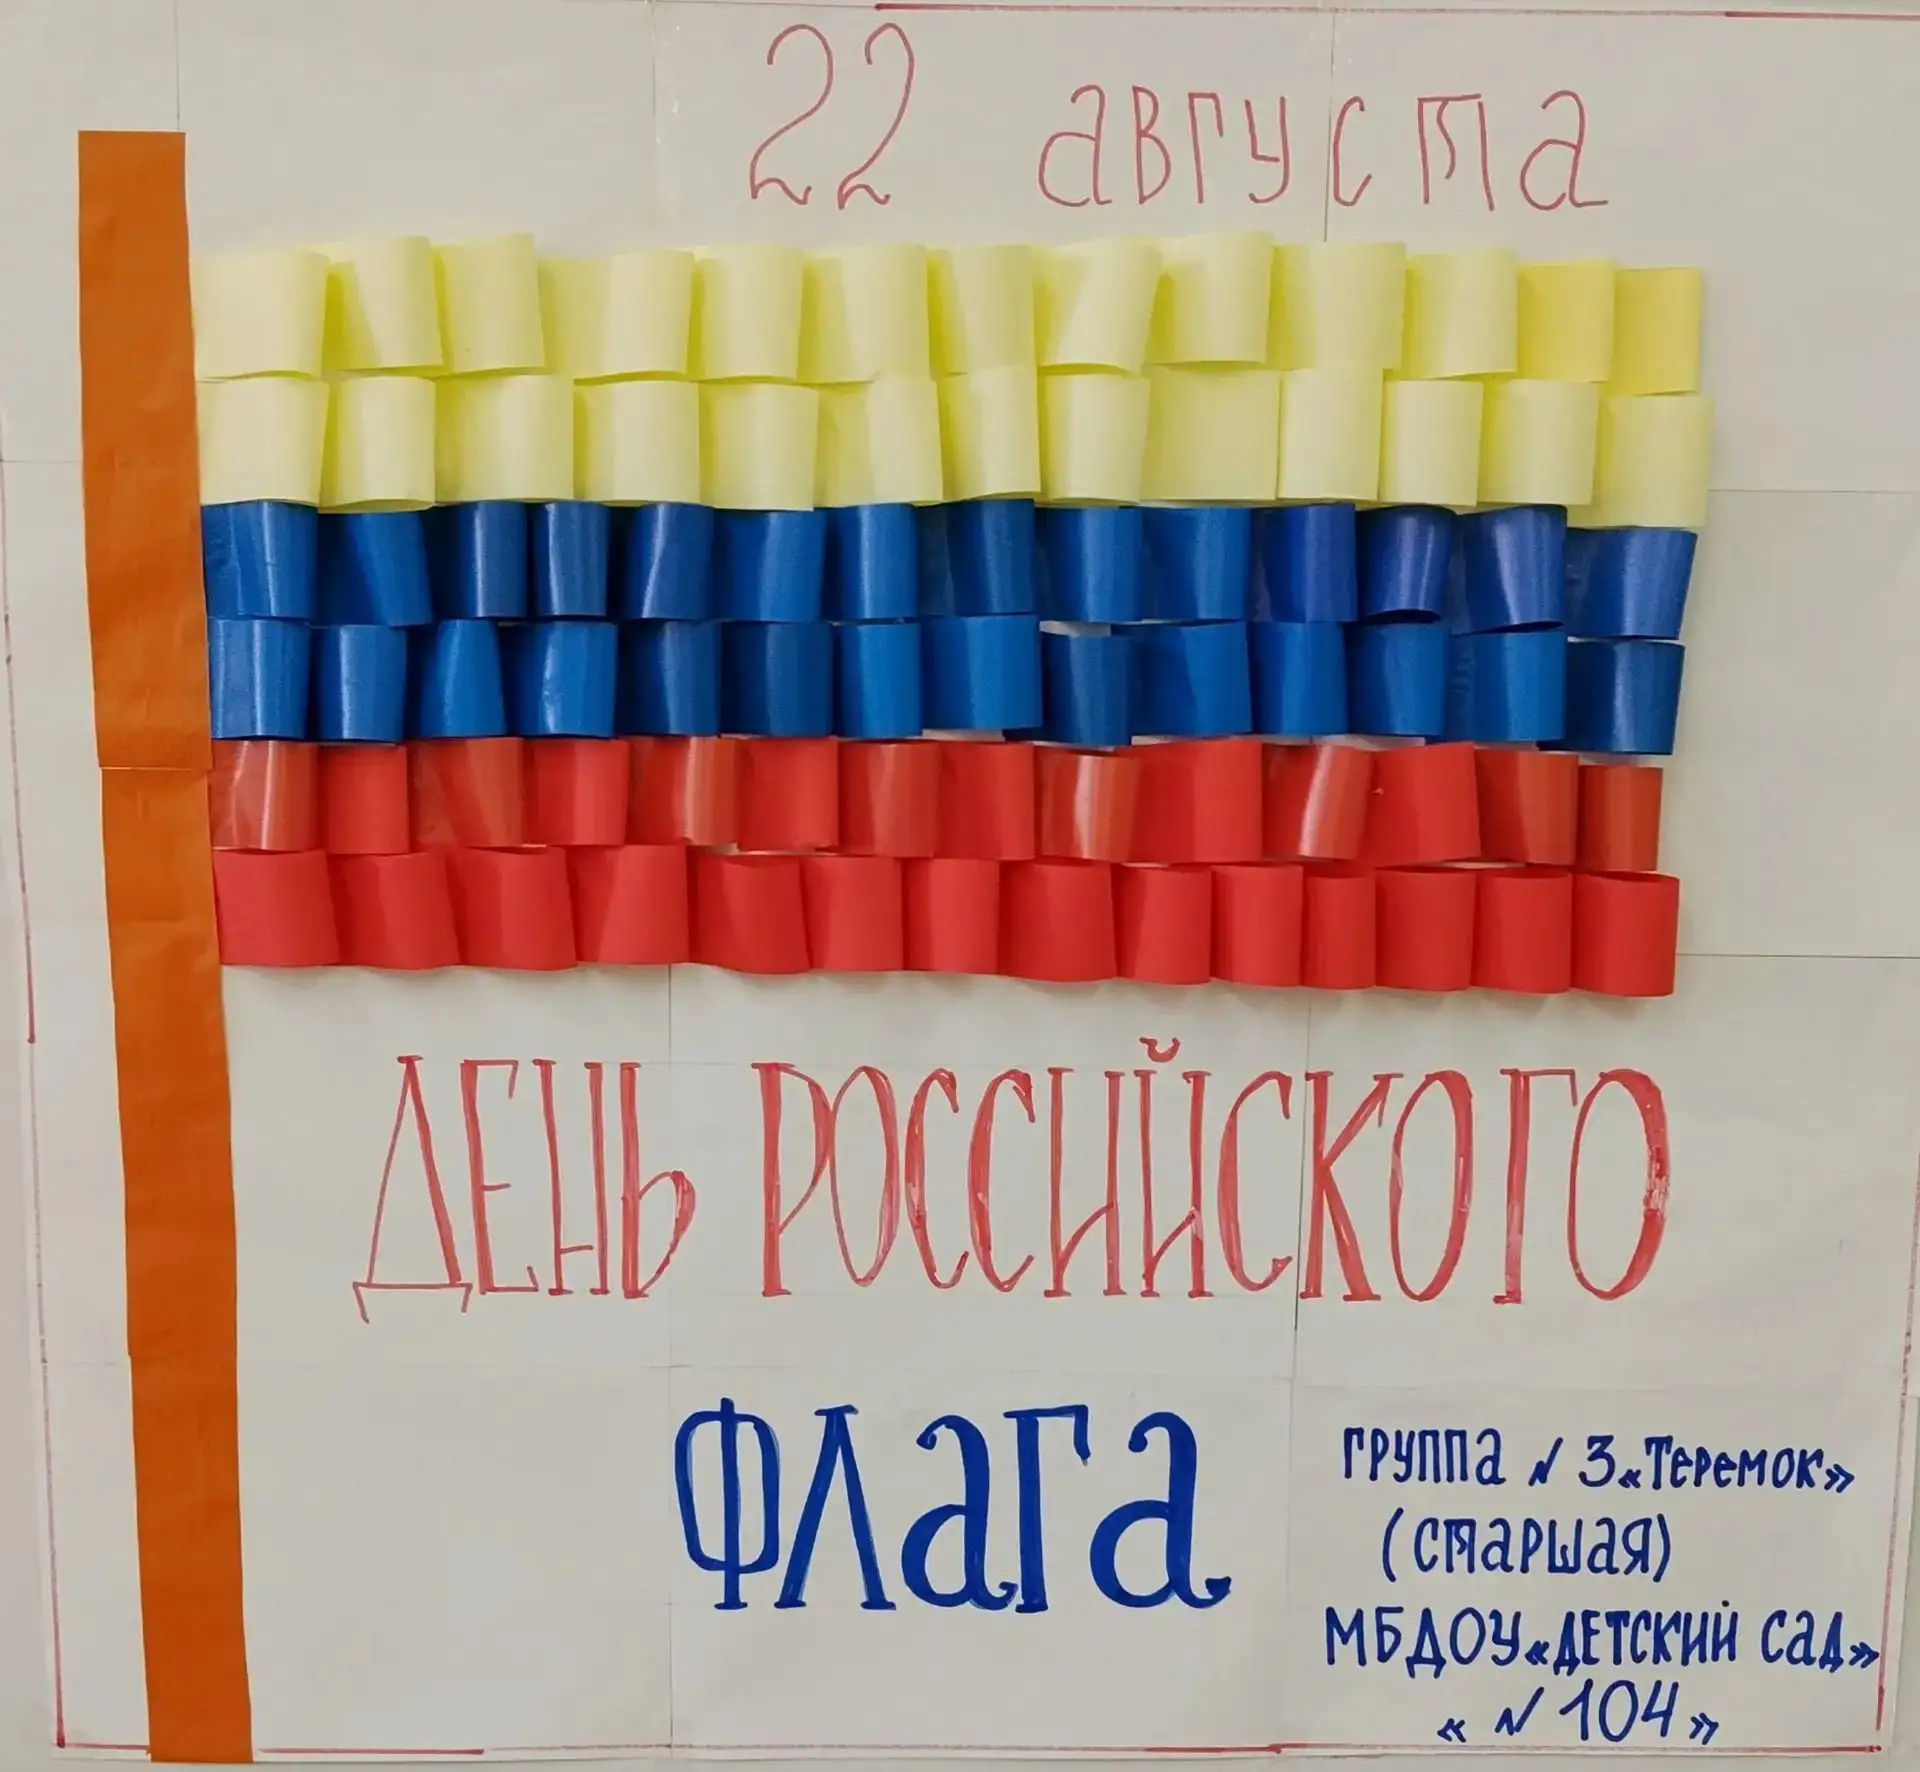 22 августа
ДЕНЬ РОССИЙСКОГО
ФЛАГА
ГРУППА № 3 «Теремок»
(СТАРШАЯ)
МБДОУ «ДЕТСКИЙ САД»
« № 104 »